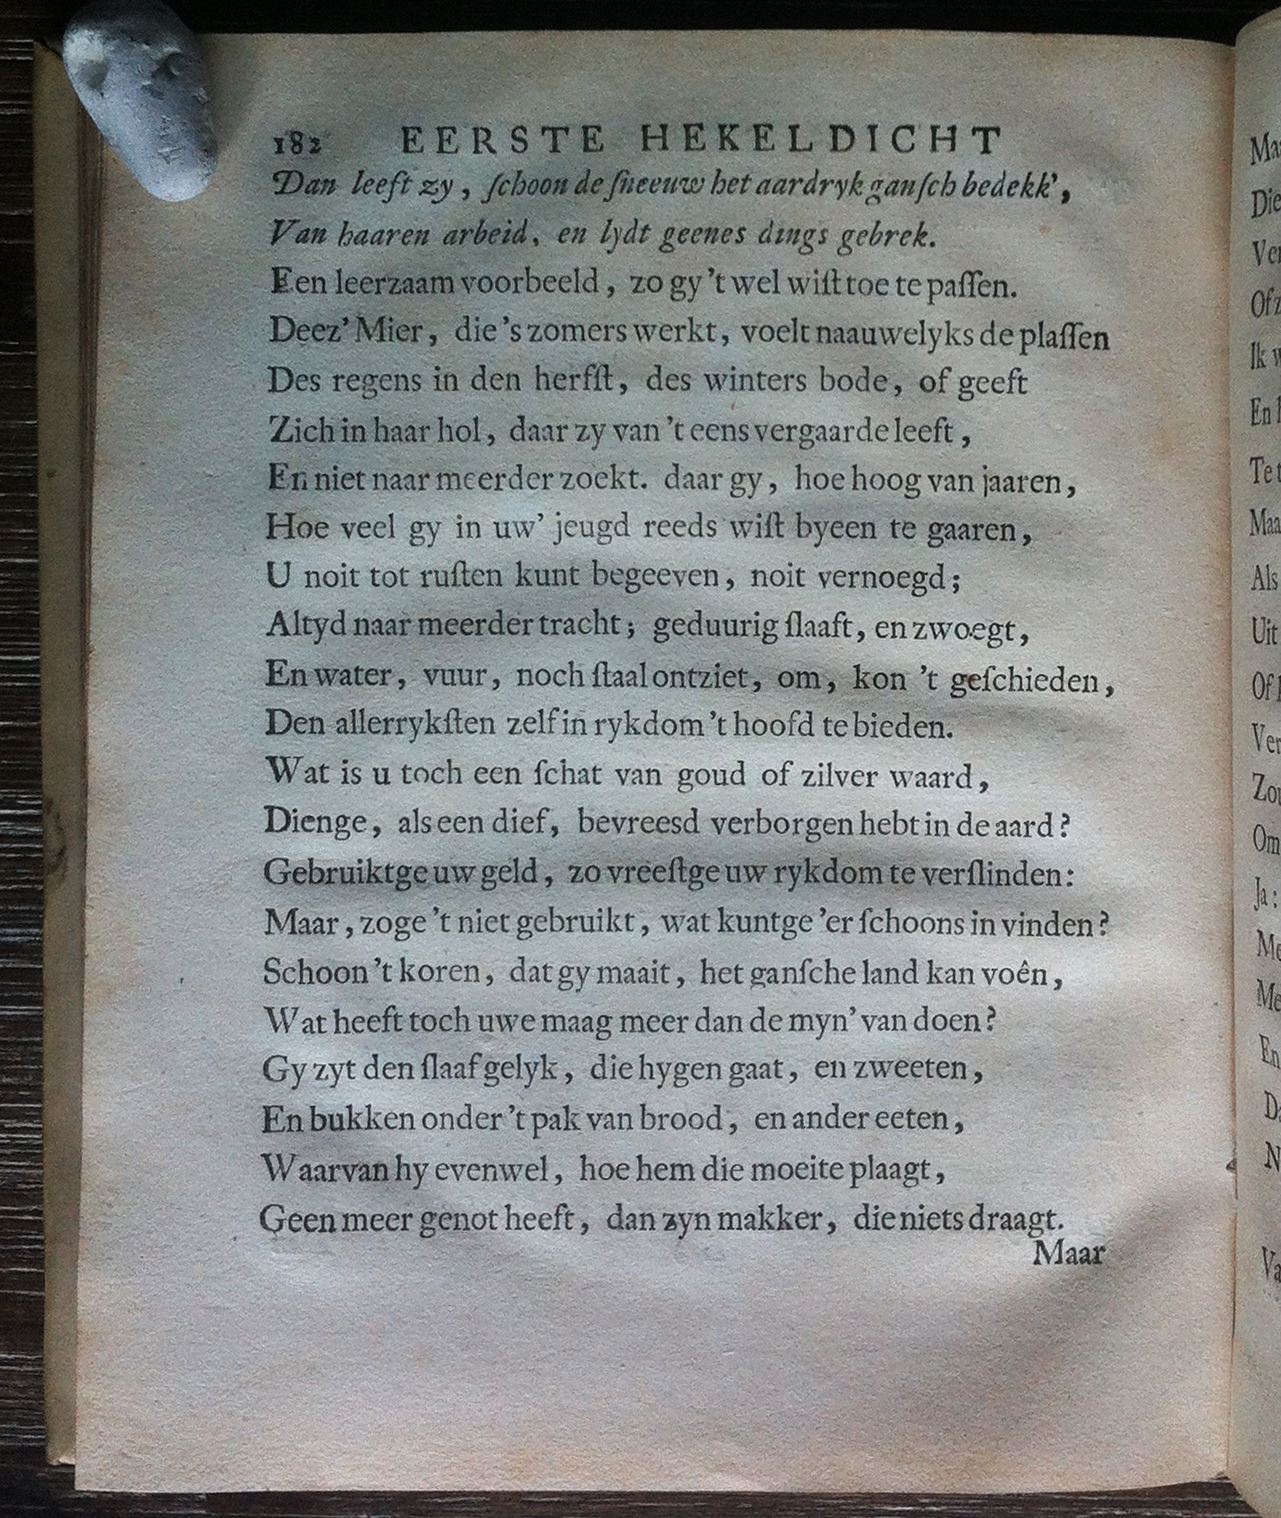 182 EERSTE HEKELDICHT
Dan leeft zy, ſchoon de ſneeuw het aardryk ganſch bedekk',
Van haaren arbeid, en lydt geenes dings gebrek.
Een leerzaam voorbeeld, zo gy 't wel wiſt toe te paſſen.
Deez' Mier, die 's zomers werkt, voelt naauwelyks de plaſſen
Des regens in den herfſt, des winters bode, of geeft
Zich in haar hol, daar zy van 't eens vergaarde leeft,
En niet naar meerder zoekt. daar gy, hoe hoog van jaaren,
Hoe veel gy in uw' jeugd reeds wiſt byeen te gaaren,
U noit tot ruſten kunt begeeven, noit vernoegd;
Altyd naar meerder tracht; geduurig ſlaaft, en zwoegt,
En water, vuur, noch ſtaal ontziet, om, kon 't geſchieden,
Den allerrykſten zelf in rykdom 't hoofd te bieden.
Wat is u toch een ſchat van goud of zilver waard,
Dienge, als een dief, bevreesd verborgen hebt in de aard?
Gebruiktge uw geld, zo vreeſtge uw rykdom te verſlinden:
Maar, zoge 't niet gebruikt, wat kuntge 'er ſchoons in vinden?
Schoon 't koren, dat gy maait, het ganſche land kan voên,
Wat heeft toch uwe maag meer dan de myn' van doen?
Gy zyt den ſlaaf gelyk, die hygen gaat, en zweeten,
En bukken onder 't pak van brood, en ander eeten,
Waarvan hy evenwel, hoe hem die moeite plaagt,
Geen meer genot heeft, dan zyn makker, die niets draagt.
Maar